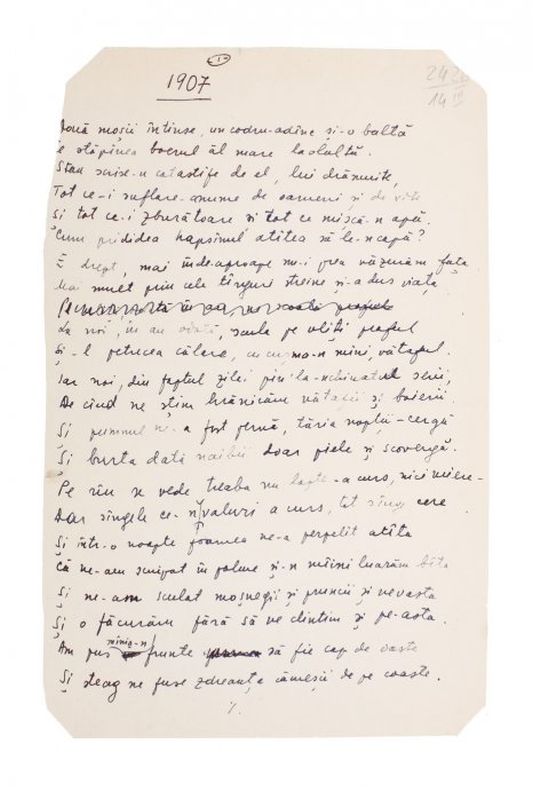 1
1907
242
14 III
Două moșii întinse, un codru-adînc și-o baltă
stăpînea boerul ăl mare laolaltă.
Stau scrise-n catastife de el, lui drămuite,
Tot ce-i suflare-anume de oameni și de vite
Și tot ce-i zburătoare și tot ce mișcă-n apă.
Cum prididea hapsînul atîtea să le-ncapă?
E drept, mai îndeaproape nu-i prea văzurăm fața
Mai mult prin cele tîrguri streine și-a dus viața
La noi, în an odată, scula pe uliți praful
Și-l petrecea călare, cu cușma-n mîini, vătaful.
Iar noi, din faptul zilei pîn'la-nchinatul serii,
De cînd ne știm hrăniräm vătafii și boierii.
Și pumnul ne-a fost pernă, tăria nopții-cergă
Și burta dată naibii doar piele și scovergă.
Pe rîu se vede treaba nu lapte-a curs, nici miere-
Dar sîngele ce-n valuri a curs, tot sînge cere
Și într-o noapte foamea ne-a perpelit atîta
Că ne-am scuipat în palme și-n mîini luarăm bîta
Și ne-am sculat moșnegii și pruncii și nevasta
Și o făcurăm fără să ne clintim și pe-asta.
Am pus mînia-n frunte să fie cap de oaste
Și steag ne fuse zdreanța cămeșii de pe coaste.